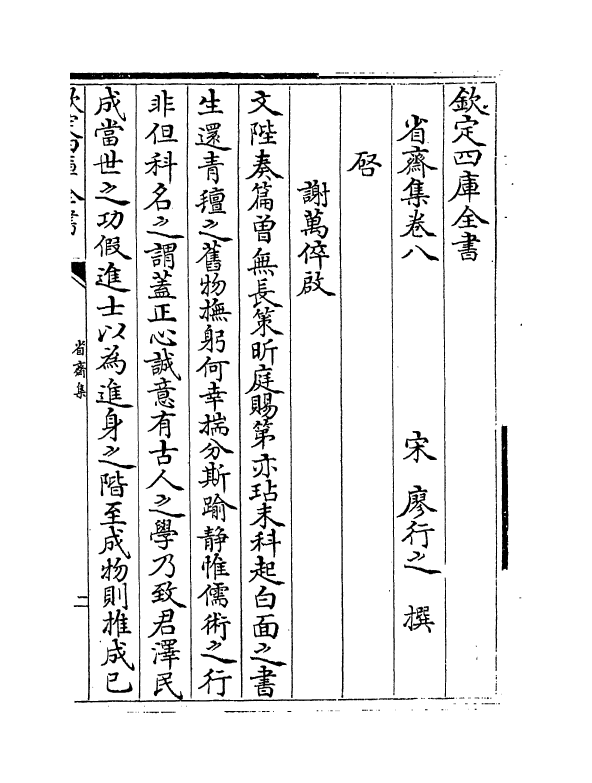 欽定四庫全書
省齋集卷八
宋 廖行之 撰
啓
謝萬倅啟
文陛奏篇曽無長策昕庭賜第亦玷末科起白面之書
生還青氊之舊物撫躬何幸揣分斯踰静惟儒術之行
非但科名之謂蓋正心誠意有古人之學乃致君澤民
成當世之功假進士以為進身之階至成物則推成己
欽定四庫全書
省齋集
二